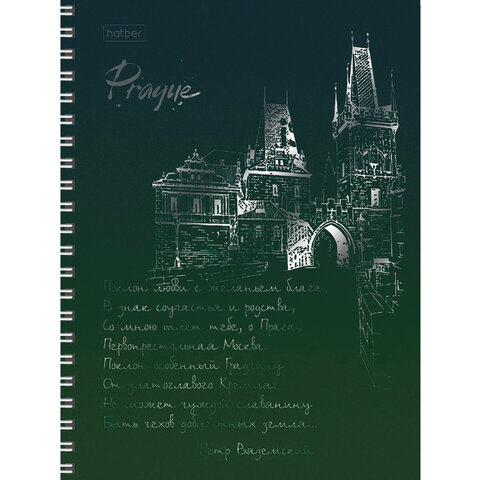 hatber
Prague
Поклон любви с желаньем блага,
В знак соучастья и родства,
Со мною шлет тебе, о Прага,
Первопрестольная Москва.
Поклон особенный Градчину
От златоглавого Кремля:
Не может чуждой славянину
Быть чехов доблестных земля...
Петр Вяземский